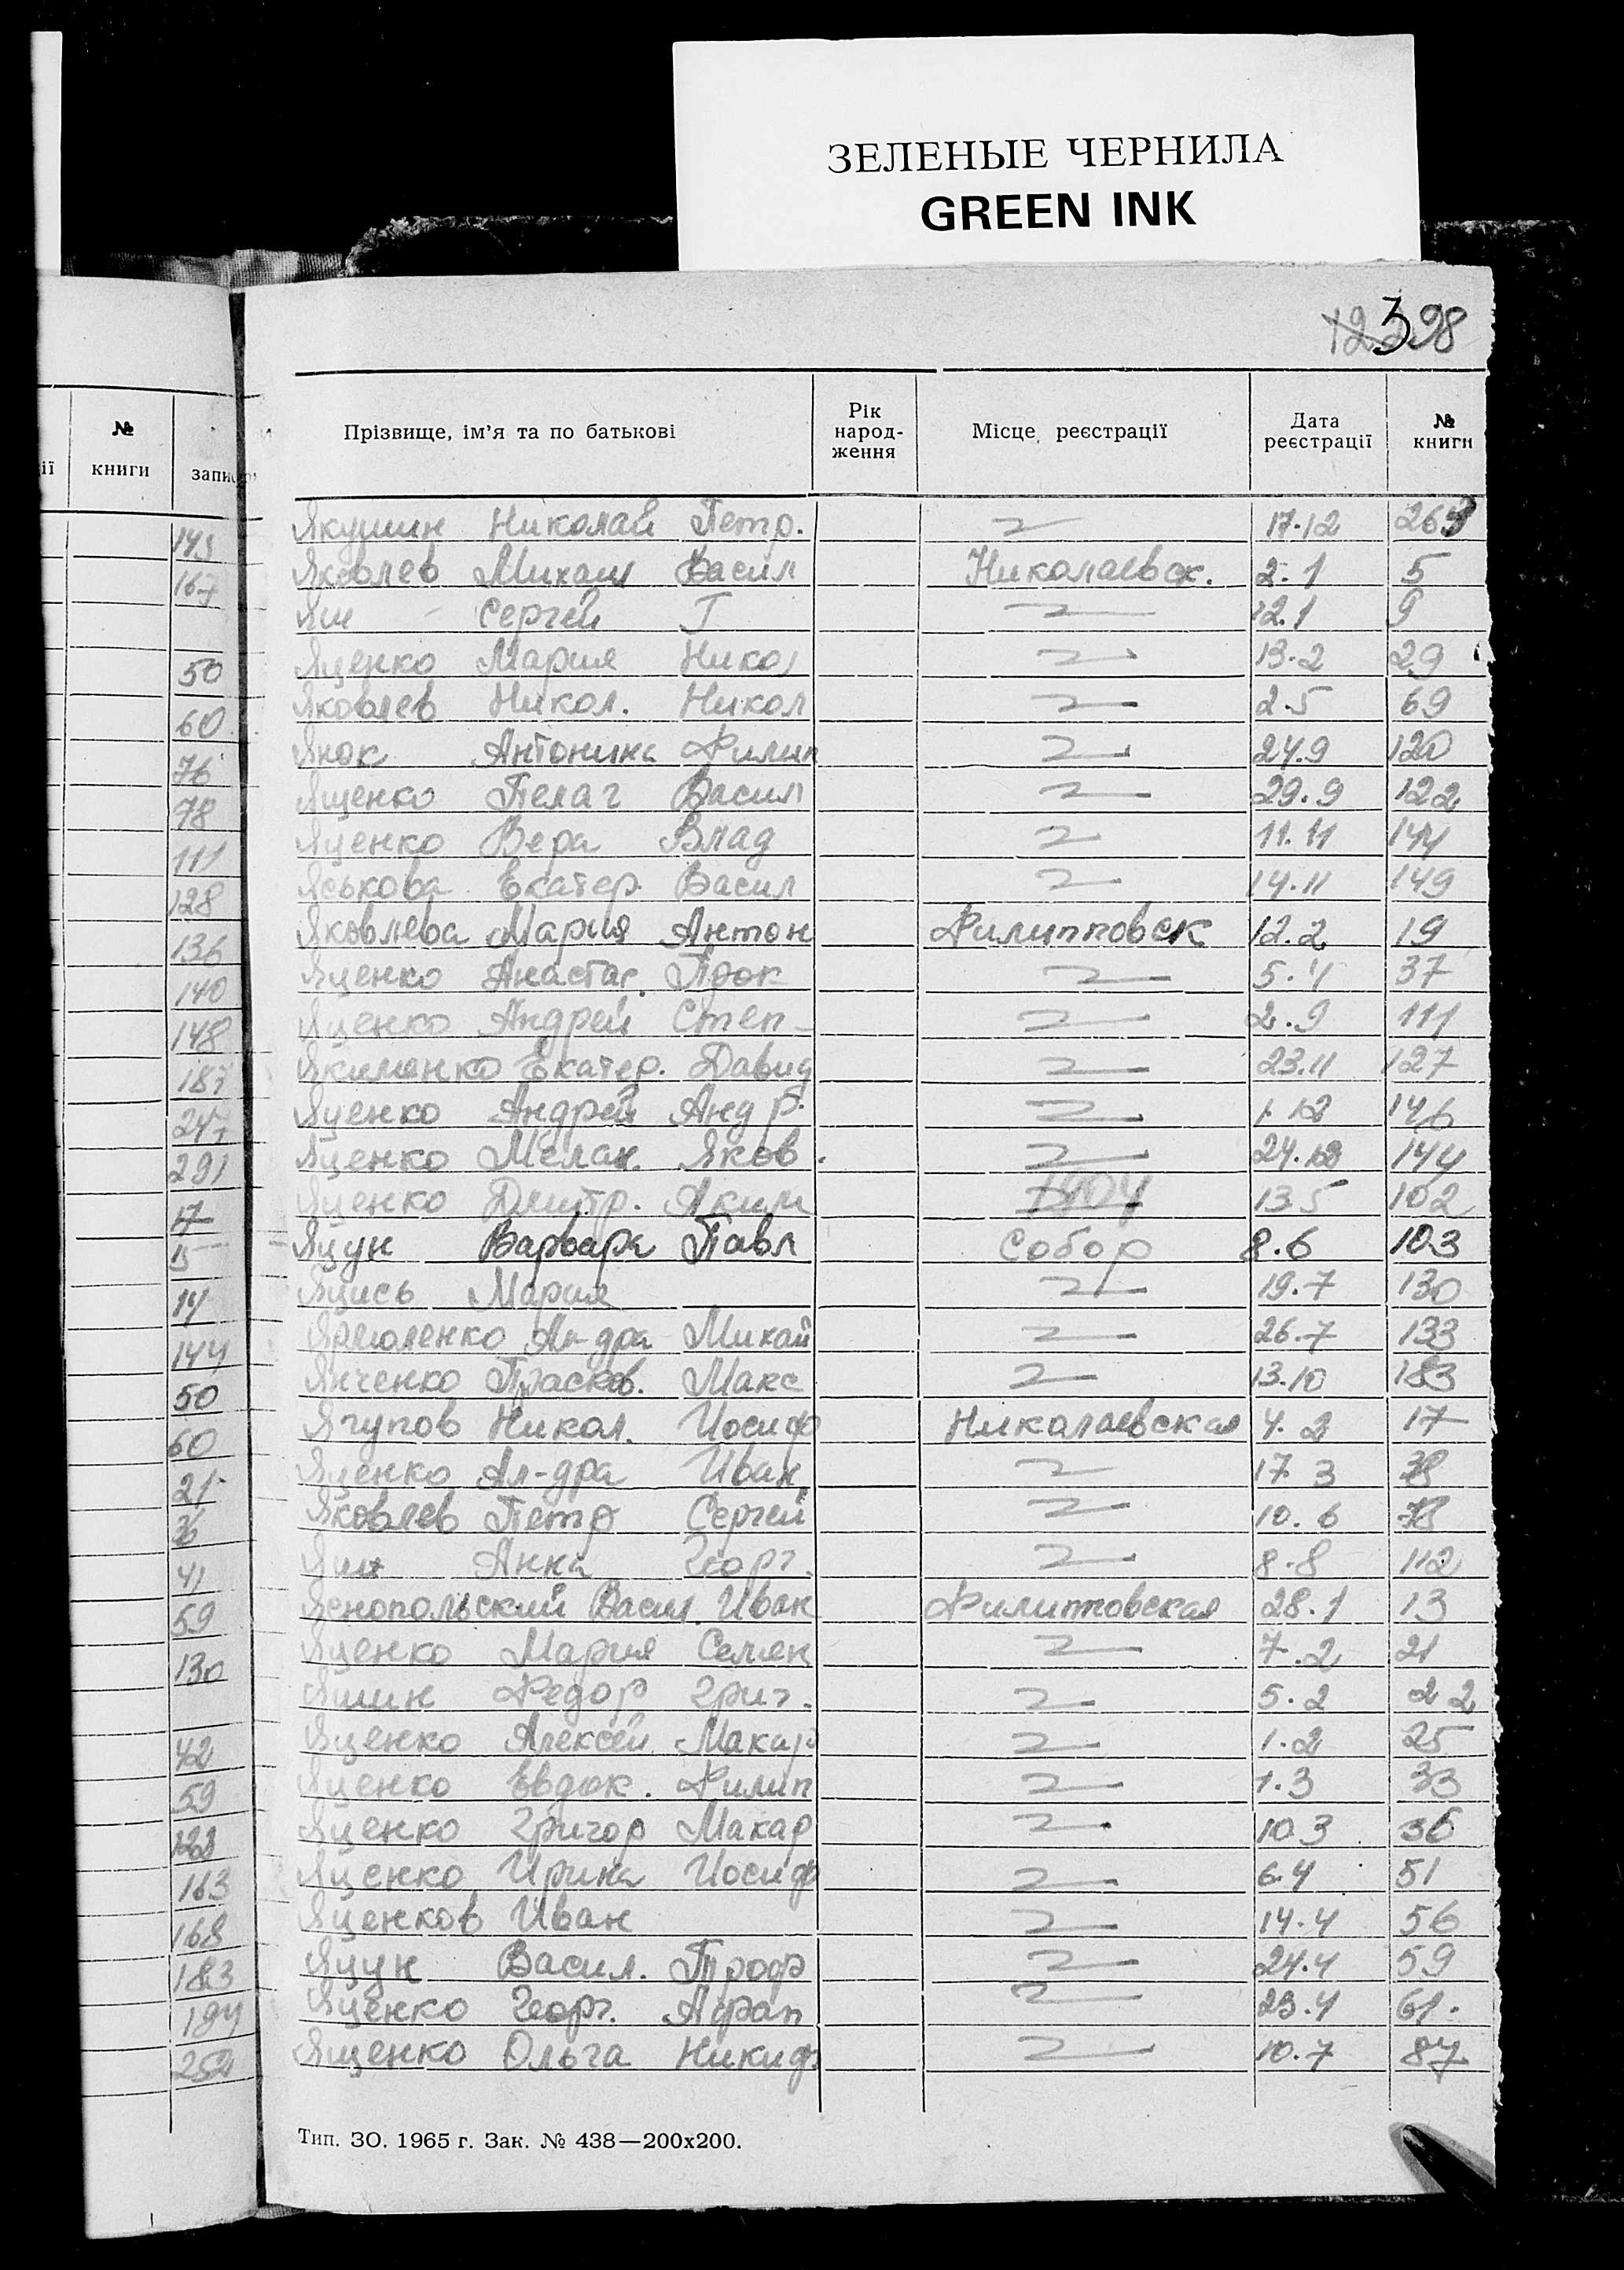 ЗЕЛЕНЫЕ ЧЕРНИЛА
GREEN INK
398
№ книги записи
143
167
50
60
76
78
111
128
136
140
148
187
247
291
17
15
14
144
50
60
21
36
41
59
130
42
59
123
163
168
183
194
252
Прізвище, ім'я та по батькові Рік народ-ження Місце реєстрації Дата реєстрації № книги
Якушин Николай Петр. 17.12 263
Яковлев Михаил Васил Николаевск. 2.1 5
Яш Сергей Г 12.1 9
Яценко Мария Никол 13.2 29
Яковлев Никол. Никол 2.5 69
Янок Антонина Филип 24.9 120
Ященко Пелаг Васил 29.9 122
Яценко Вера Влад 11.11 144
Яськова Екатер. Васил 14.11 149
Яковлева Мария Антон Филипповск 12.2 19
Яценко Анастас. Прок 5.4 37
Яценко Андрей Степ 2.9 111
Якименко Екатер. Давид 23.11 127
Яценко Андрей Андр. 1.12 146
Яценко Мелан. Яков. 24.12 144
Яценко Дмитр. Аким 1904 13.5 102
Яцун Варвара Павл Собор 8.6 103
Яцись Мария 19.7 130
Ярмоленко Ал-дра Михай 26.7 133
Янченко Прасков. Макс 13.10 183
Ягупов Никол. Иосиф Николаевская 4.2 17
Яценко Ал-дра Иван 17.3 38
Яковлев Петр Сергей 10.6 78
Анна Георг. 8.8 112
Яснопольский Васил. Иван Филипповская 28.1 13
Яценко Мария Семен 7.2 21
Яшин Федор Григ. 5.2 22
Яценко Алексей Макар 1.2 25
Яценко Евдок. Филип 1.3 33
Яценко Григор Макар 10.3 36
Яценко Ирина Иосиф 6.4 51
Яценков Иван 14.4 56
Яцун Васил. Троф 24.4 59
Яценко Георг. Афан 23.4 61.
Ященко Ольга Никиф. 10.7 87
Тип. ЗО. 1965 г. Зак. № 438—200х200.